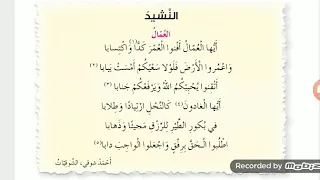 النَّشيدَ
العُمَّالُ
أَيُّها العُمَّالُ أَفْنوا العُمْرَ كَدًّا وَّاكْتِسابا
وَاعْمُروا الْأَرْضَ فَلَوْلا سَعْيُكُمْ أَمْسَتْ يَبابا (٢)
أَتْقِنوا يُحْبِبْكُمُ اللهُ وَيَرْفَعْكُمْ جَنابا (٣)
أَيُّها الْغادونَ (٤) كَالنَّحْلِ ارْتِيادًا وَطِلابا
في بُكورِ الطَّيْرِ لِلرِّزْقِ مَجيئًا وَذَهابا
اطْلُبوا الْحَقَّ بِرِفْقٍ وَاجْعَلوا الْواجِبَ دابا (٥)
أَحْمَدُ شوقي، الشَّوقِيّات
Recorded by